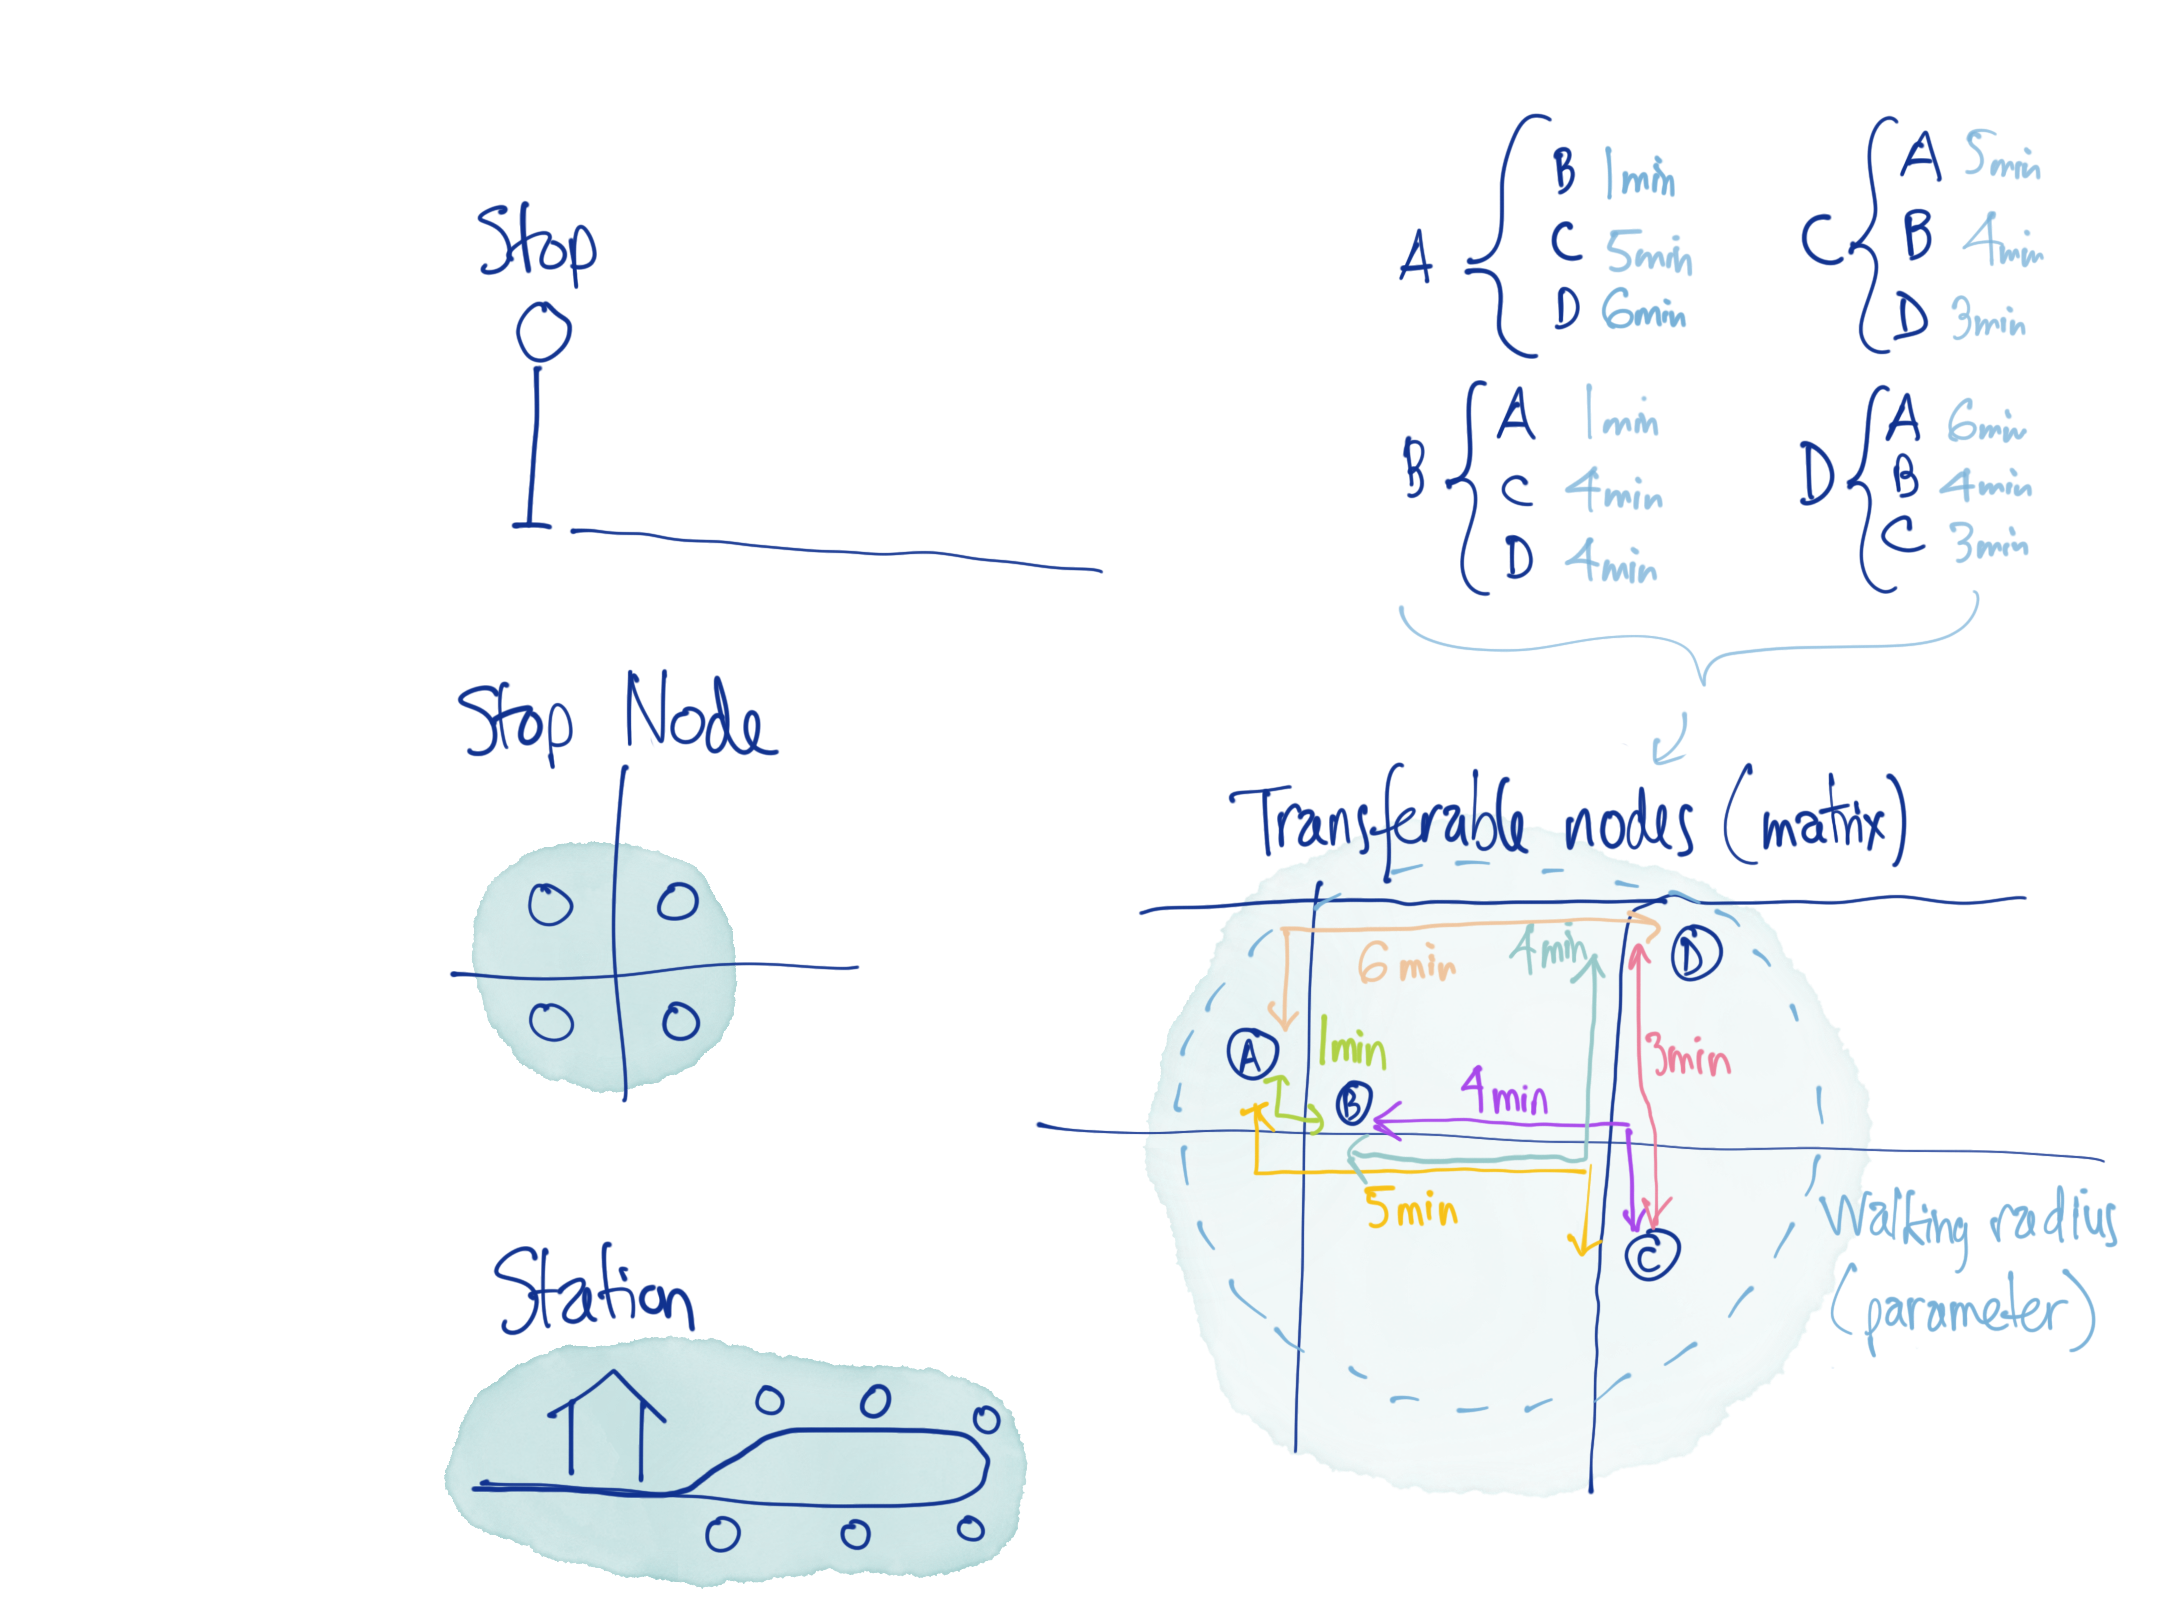 Stop
Stop Node
Station
A
B 1min
C 5min
D 6min
B
A 1min
C 4min
D 4min
C
A 5min
B 4min
D 3min
D
A 6min
B 4min
C 3min
Transferable nodes (matrix)
6min
4min
D
A
1min
B
4min
3min
5min
C
Walking radius
(parameter)